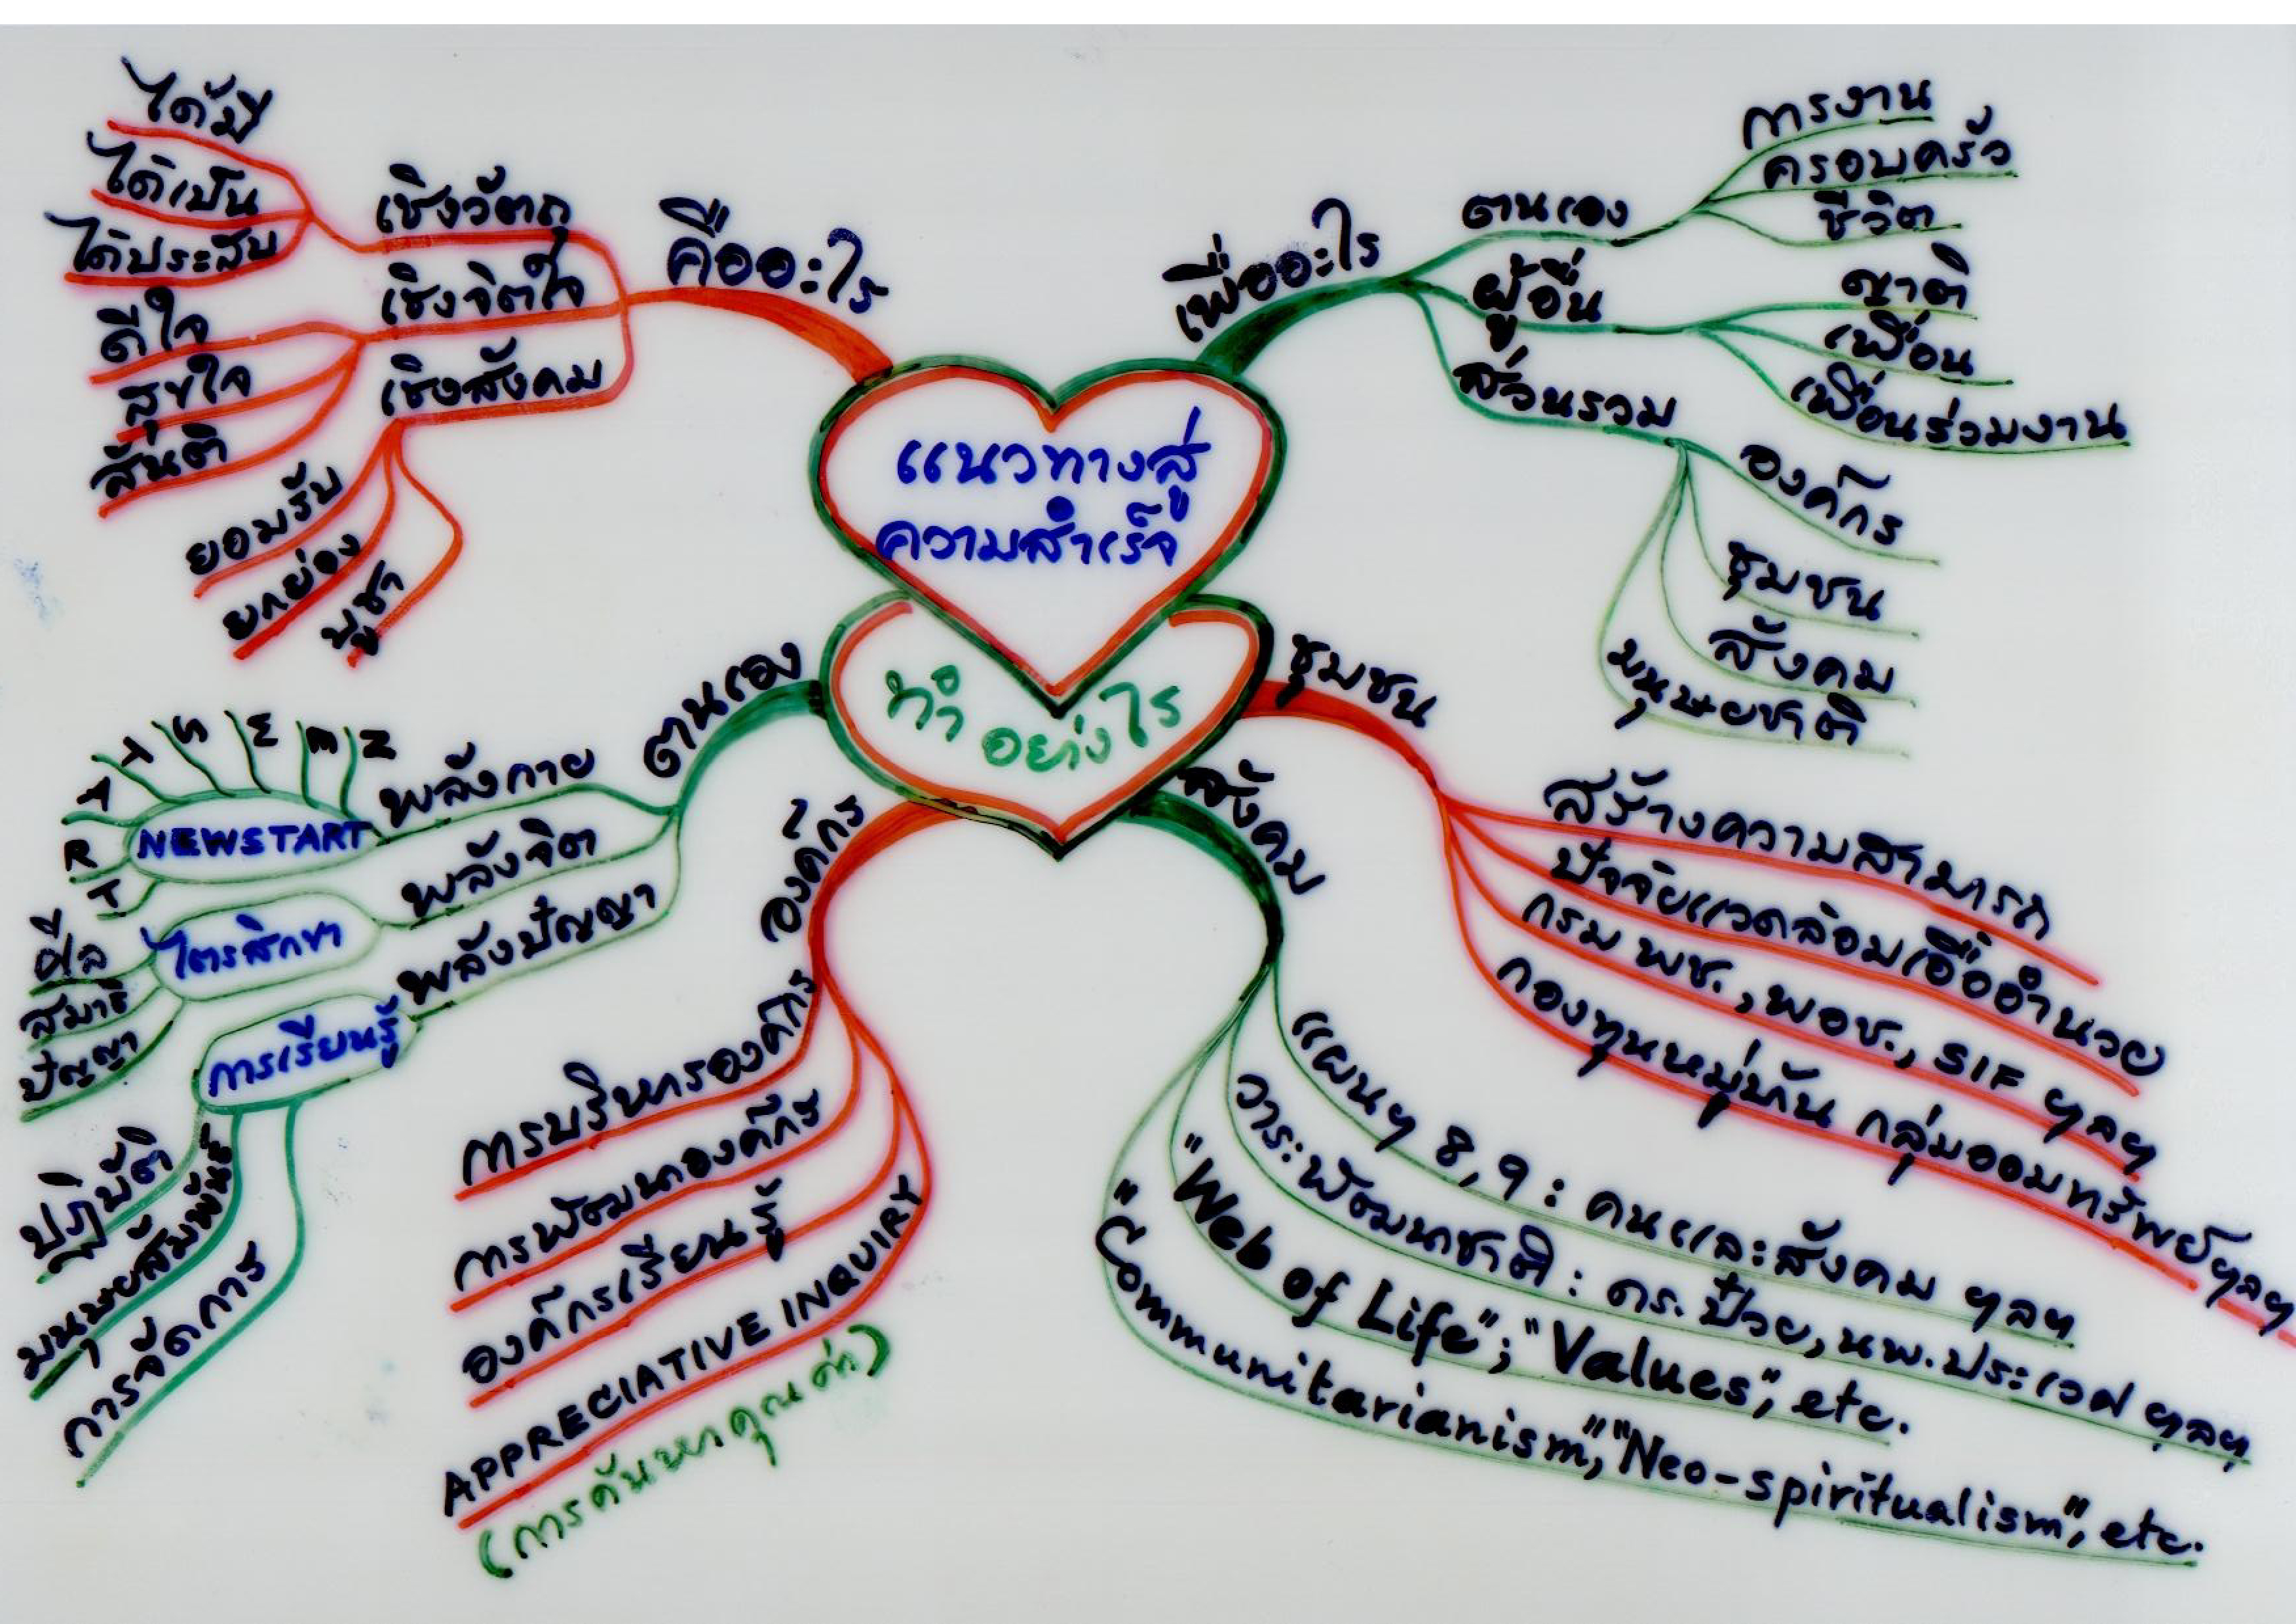 แนวทางสู่
ความสำเร็จ
คืออะไร
เชิงวัตถุ
ได้มี
ได้เป็น
ได้ประสบ
เชิงจิตใจ
ดีใจ
สุขใจ
สันติ
เชิงสังคม
ยอมรับ
ยกย่อง
บูชา
เพื่ออะไร
ตนเอง
การงาน
ครอบครัว
ชีวิต
ผู้อื่น
ญาติ
เพื่อน
เพื่อนร่วมงาน
ส่วนรวม
องค์กร
ชุมชน
สังคม
มนุษยชาติ
ทำ
อย่างไร
ตนเอง
พลังกาย
NEWSTART
N
E
W
S
T
A
R
T
พลังจิต
ไตรสิกขา
ศีล
สมาธิ
ปัญญา
พลังปัญญา
การเรียนรู้
ปฏิบัติ
มนุษยสัมพันธ์
การจัดการ
องค์กร
การบริหารองค์กร
การพัฒนาองค์กร
องค์กรเรียนรู้
APPRECIATIVE INQUIRY
(การค้นหาคุณค่า)
ชุมชน
สร้างความสามารถ
ปัจจัยแวดล้อมเอื้ออำนวย
กรม พช., พอช., SIF ฯลฯ
กองทุนหมู่บ้าน กลุ่มออมทรัพย์ฯลฯ
สังคม
แผนฯ 8, 9 : คนและสังคม ฯลฯ
วาระพัฒนาชาติ : ดร. ป๋วย, นพ. ประเวศ ฯลฯ
"Web of Life"; "Values", etc.
"Communitarianism", "Neo-spiritualism", etc.